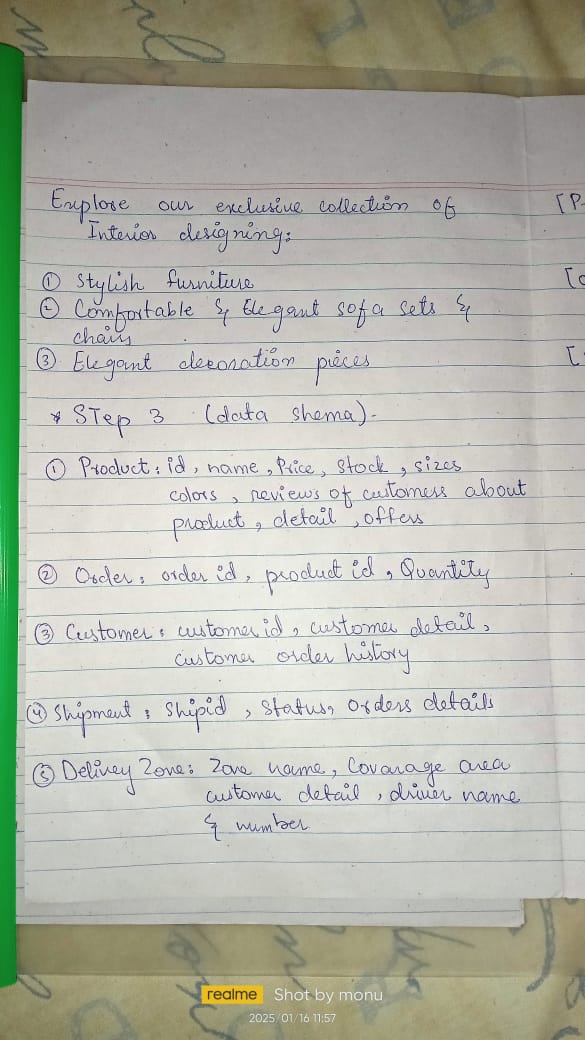 Explore our exclusive collection of
Interior designing:
① Stylish furniture
② Comfortable & Elegant sofa sets &
chairs
③ Elegant decoration pieces
* STep 3 (data shema).
① Product: id, name, Price, Stock, sizes
colors, reviews of customers about
product, detail, offers
② Order: order id, product id, Quantity
③ Customer: customer id, customer detail,
customer order history
④ Shipment: Shipid, Status, orders details
⑤ Delivey Zone: Zone name, Covarage area
customer detail, driver name
& number
[P-
[
[
realme Shot by monu
2025/01/16 11:57